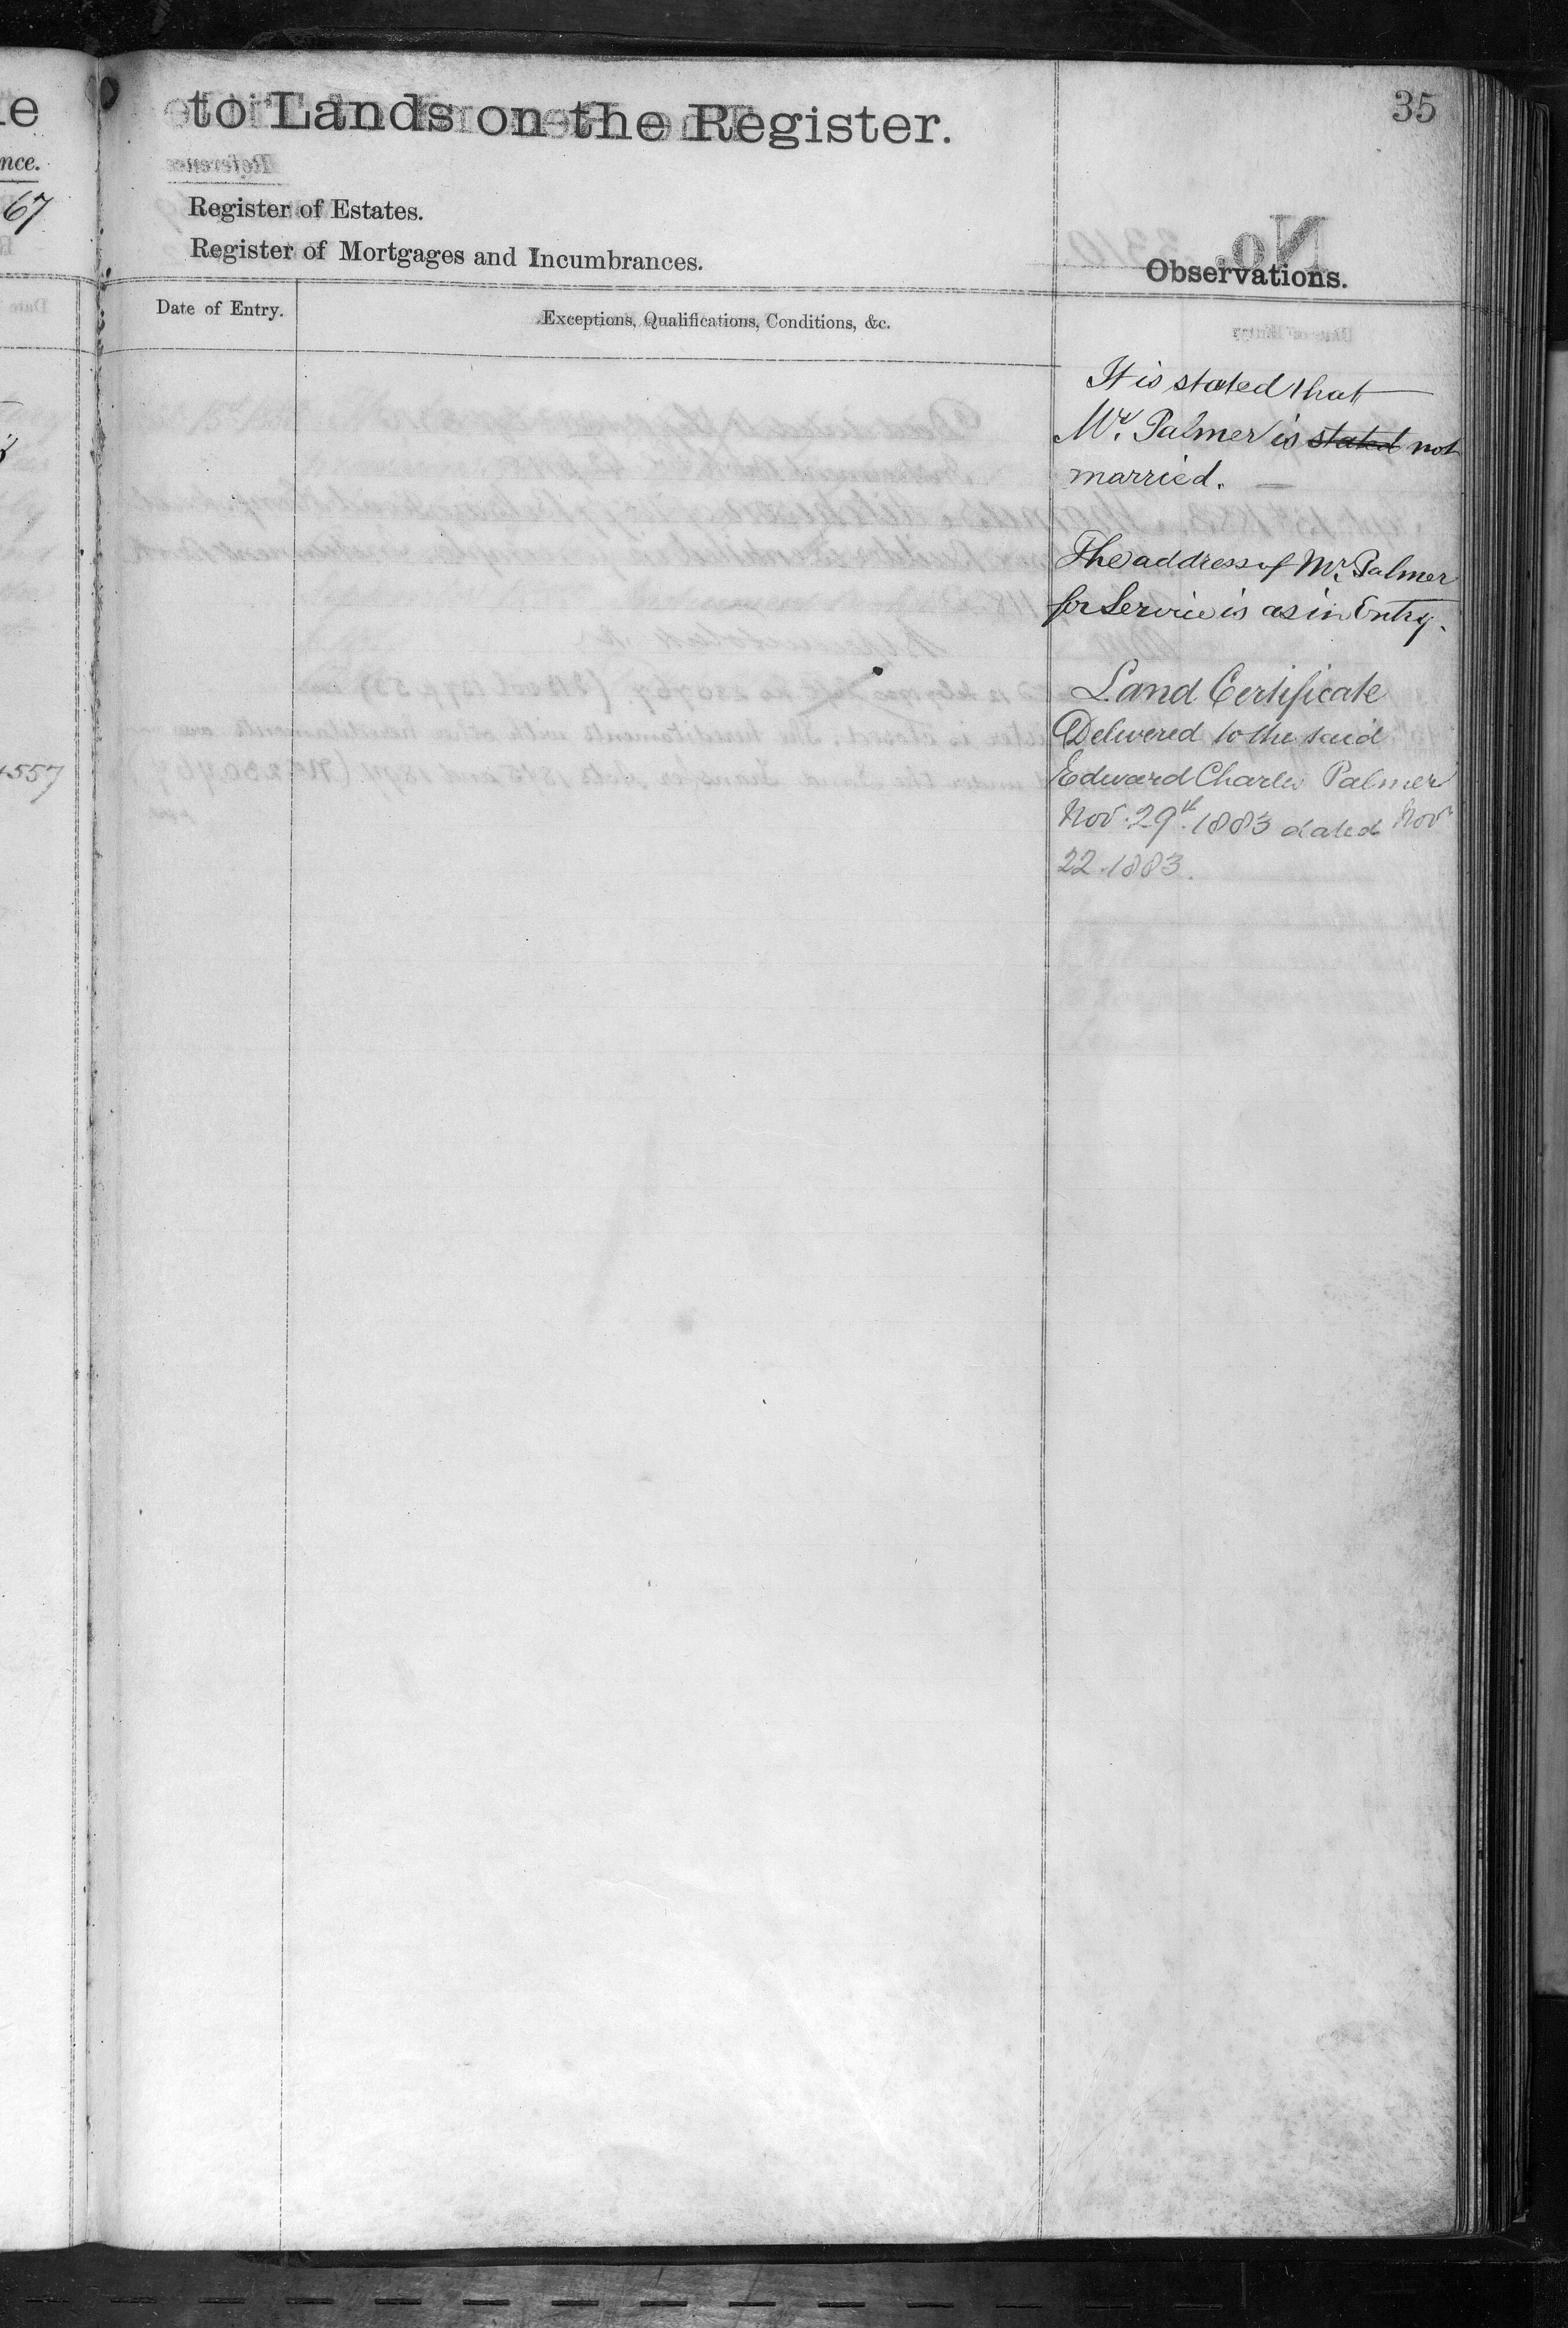 35
to Lands on the Register.
nce.
67
Register of Estates.
Register of Mortgages and Incumbrances.
Observations.
Date of Entry.
Exceptions, Qualifications, Conditions, &c.
It is stated that
Mr. Palmer is stated not
married.
The address of Mr. Palmer
for Service is as in Entry.
Land Certificate
Delivered to the said
Edward Charles Palmer
Nov. 29th. 1883 dated Nov
22. 1883.
557